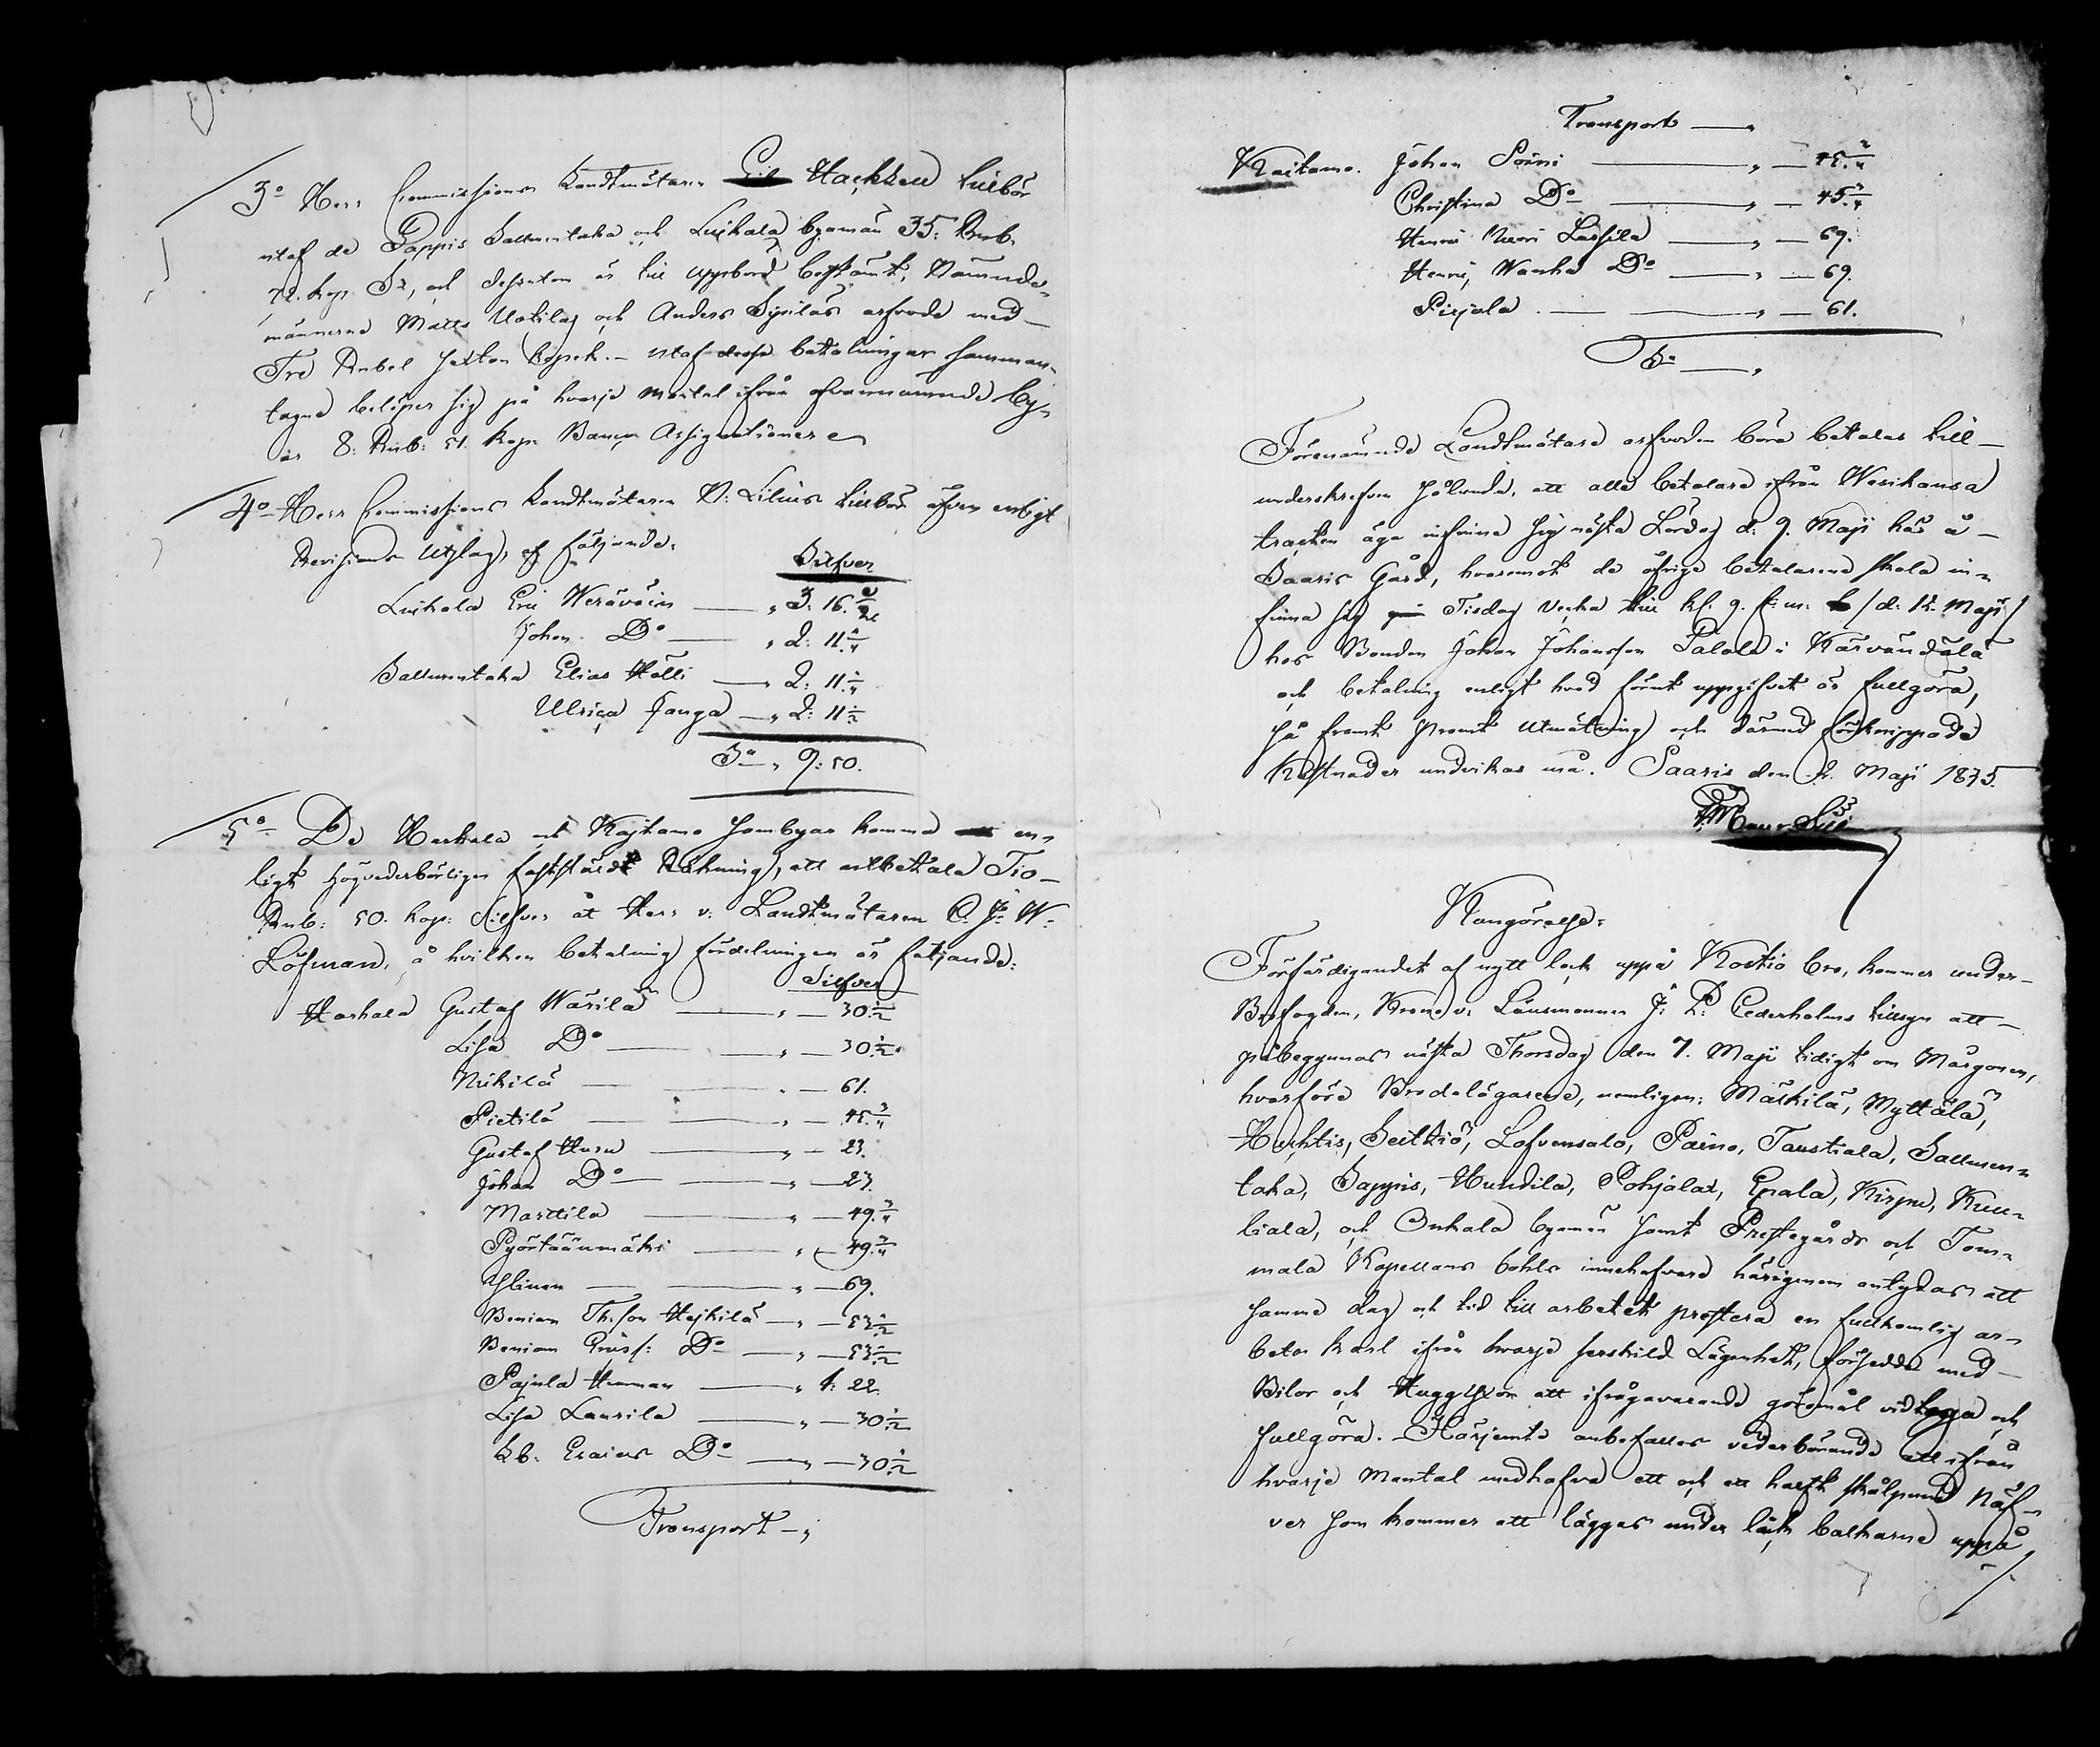 3o Herr Commissions Landtmätaren Hackzell tillbör
utaf de Sappis Sallmentaka och Luikala byamän 35. Rub.
72. kop. Sr, och dessutom är till uppbörd bestämt, Nämnde-
männerne Matts Uotilas och Anders Sipiläs arfvode med
Tre Rubel sexton kopek. — utaf dessa betalningar samman-
tagne belöper sig på hvarje mantal ifrån ofvannämnde by-
ar 8. Rub: 51. kop. Banco Assignationer
4o Herr Commissions Landtmätaren Lilius tillbör äfven enligt
Revisions Utslag, af följande:
Silfver
Luikala Eric Weräväin — „ 3: 16.
Johan Do — „ 2: 11 1/4
Sallmentaka Elias Hälli — „ 2: 11 1/4
Ulrica Janga — „ 2: 11 1/2
Sa „ 9: 50.
5o De Harhala och Kajtamo hembyar komma en-
ligt högvederbörligen fastställd Räkning, att utbetala Tio
Rub: 50. kop: Silfver åt Herr v: Landtmätaren C. J. W.
Löfman, å hvilken betalning fördelningen är följande:
Silfver
Harhala Gustaf Warila — „ — 30 1/2
Lisa Do — „ — 30 1/2
Nikilä — „ — 61.
Pietilä — „ — 45 3/4
Gustaf Huru — „ — 23.
Johan Do — „ — 23.
Marttila — „ — 49 3/4
Pyörtäänmäki — „ — 49 3/4
Ylinen — „ — 69.
Beniam Th.son Hejkilä — „ — 53 1/2
Beniam Do — „ — 53 1/2
Pajula Herman — „ 1: 22.
Lisa Laurila — „ — 30 1/2
Esaias Do — „ — 30 1/2
Transport — „
Transport — „
Kaitamo. Johan Sorri — „ — 45 3/4
Christina Do — „ — 45 3/4
Henric Nuori Lassila — „ — 69.
Henric, Wanha Do — „ — 69.
Pirjola — „ — 61.
Sa — „
Förenämnde Landtmätare arfvoden böra betalas till
underskrefven sålunda, att alla betalare ifrån Wesikansa
tracten äga infinna sig nästa Lördag d. 9. Maji här å
Saaris Gård, hvaremot de öfrige betalarene skola in-
finna sig Tisdag Vecka till kl. 9. f:m: /d: 12. Maji/
hos Bonden Johan Johansson Palala i Kärvändälä
och betalning enligt hvad förut uppgifvet är fullgöra,
så framt promt utmätning och därmed förknippade
Kostnader undvikas må. Saaris den 2. Maji 1835.
Kungörelse:
Förfärdigandet af nytt lock uppå Kostio bro, kommer under
Brofogden, Krono v: Länsmannen J. L. Cederholms tillsyn att
påbegynnas nästa Thorsdag den 7. Maji tidigt om Morgonen,
hvarföre Brodelägarene, nemligen: Märkilä, Myttälä,
Huhtis, Seitkiö, Lofvensalo, Paino, Taustiala, Sallmen-
taka, Sappis, Hundila, Pohjalax, Epaala, Kirpu, Kuu-
liala, och Onkala byamän samt Prestegårds och Tom-
mala Kapellans bohls innehafvare härigenom antydas att
samma dag och tid till arbetet prestera en fullkomlig ar-
betes karl ifrån hvarje serskild Lägenhet, försedde med
Bilor och Huggyxor att ifrågavarande göromål vidtaga och
fullgöra. Härjemte anbefalles vederbörande att ifrån
hvarje Mantal medhafva ett och ett halft skålpund Näf-
ver som kommer att läggas under läck balkarne uppå